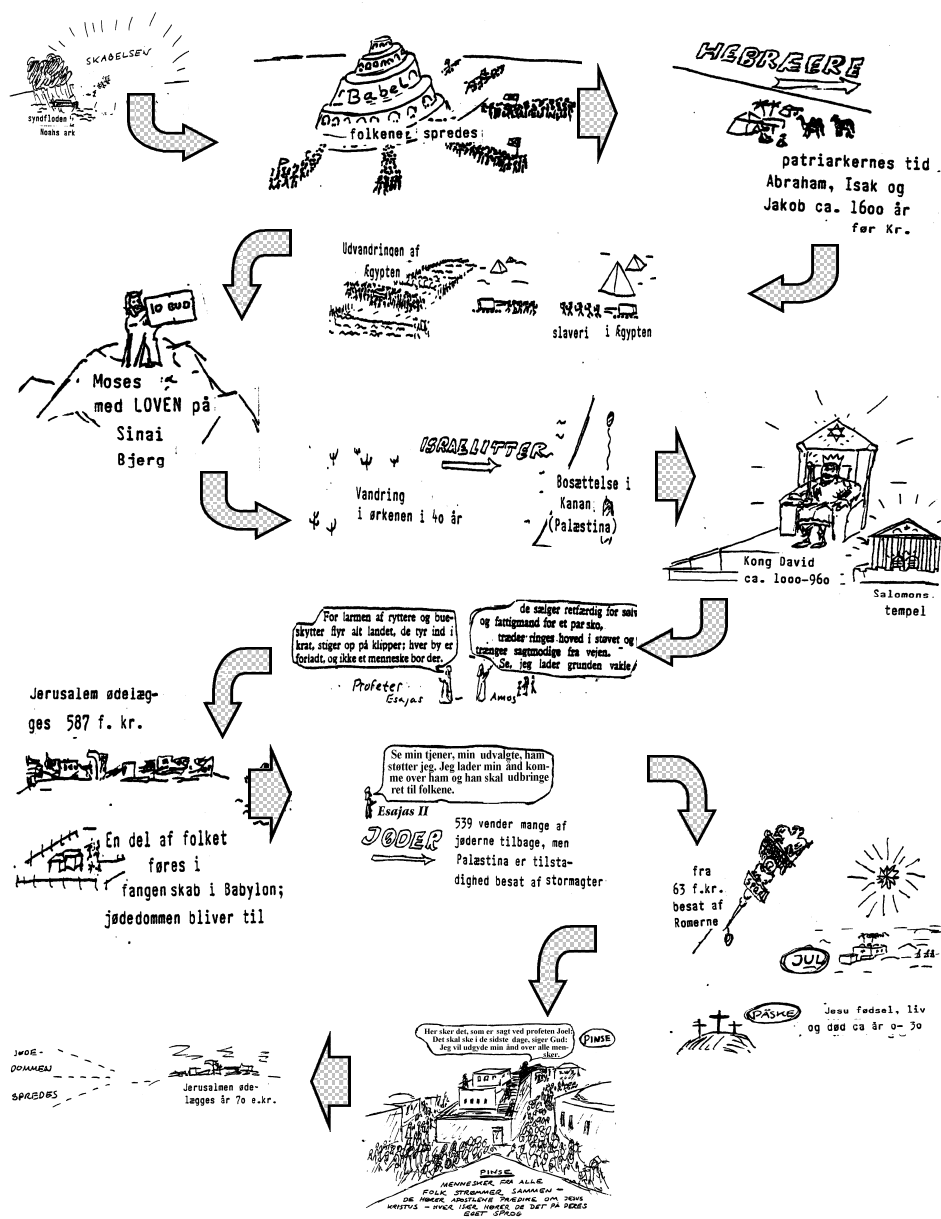 SKABELSEN
syndfloden
Noahs ark
Babel
folkene spredes
HEBRÆERE
patriarkernes tid
Abraham, Isak og
Jakob ca. 1600 år
før Kr.
Udvandringen af
Ægypten
slaveri i Ægypten
10 BUD
Moses
med LOVEN på
Sinai
Bjerg
ISRAELITTER
Vandring
i ørkenen i 40 år
Bosættelse i
Kanan
(Palæstina)
Kong David
ca. 1000-960
Salomons
tempel
For larmen af ryttere og bue-
skytter flyr alt landet, de tyr ind i
krat, stiger op på klipper; hver by er
forladt, og ikke et menneske bor der.
Profeter
Esajas
de sælger retfærdig for sølv
og fattigmand for et par sko,
træder ringes hoved i støvet og
trænger sagtmodige fra vejen.
Se, jeg lader grunden vakle
Amos
Jerusalem ødelæg-
ges 587 f. kr.
En del af folket
føres i
fangenskab i Babylon;
jødedommen bliver til
Se min tjener, min udvalgte, ham
støtter jeg. Jeg lader min ånd kom-
me over ham og han skal udbringe
ret til folkene.
Esajas II
JØDER
539 vender mange af
jøderne tilbage, men
Palæstina er tilsta-
dighed besat af stormagter
fra
63 f.kr.
besat af
Romerne
SPQR
JUL
PÅSKE
Jesu fødsel, liv
og død ca år 0- 30
Her sker det, som er sagt ved profeten Joel:
Det skal ske i de sidste dage, siger Gud:
Jeg vil udgyde min ånd over alle men-
sker.
PINSE
PINSE
MENNESKER FRA ALLE
FOLK STRØMMER SAMMEN -
DE HØRER APOSTLENE PRÆDIKE OM JESUS
KRISTUS - HVER ISÆR HØRER DE DET PÅ DERES
EGET SPROG
Jerusalmen øde-
lægges år 70 e.kr.
JØDE-
DOMMEN
SPREDES